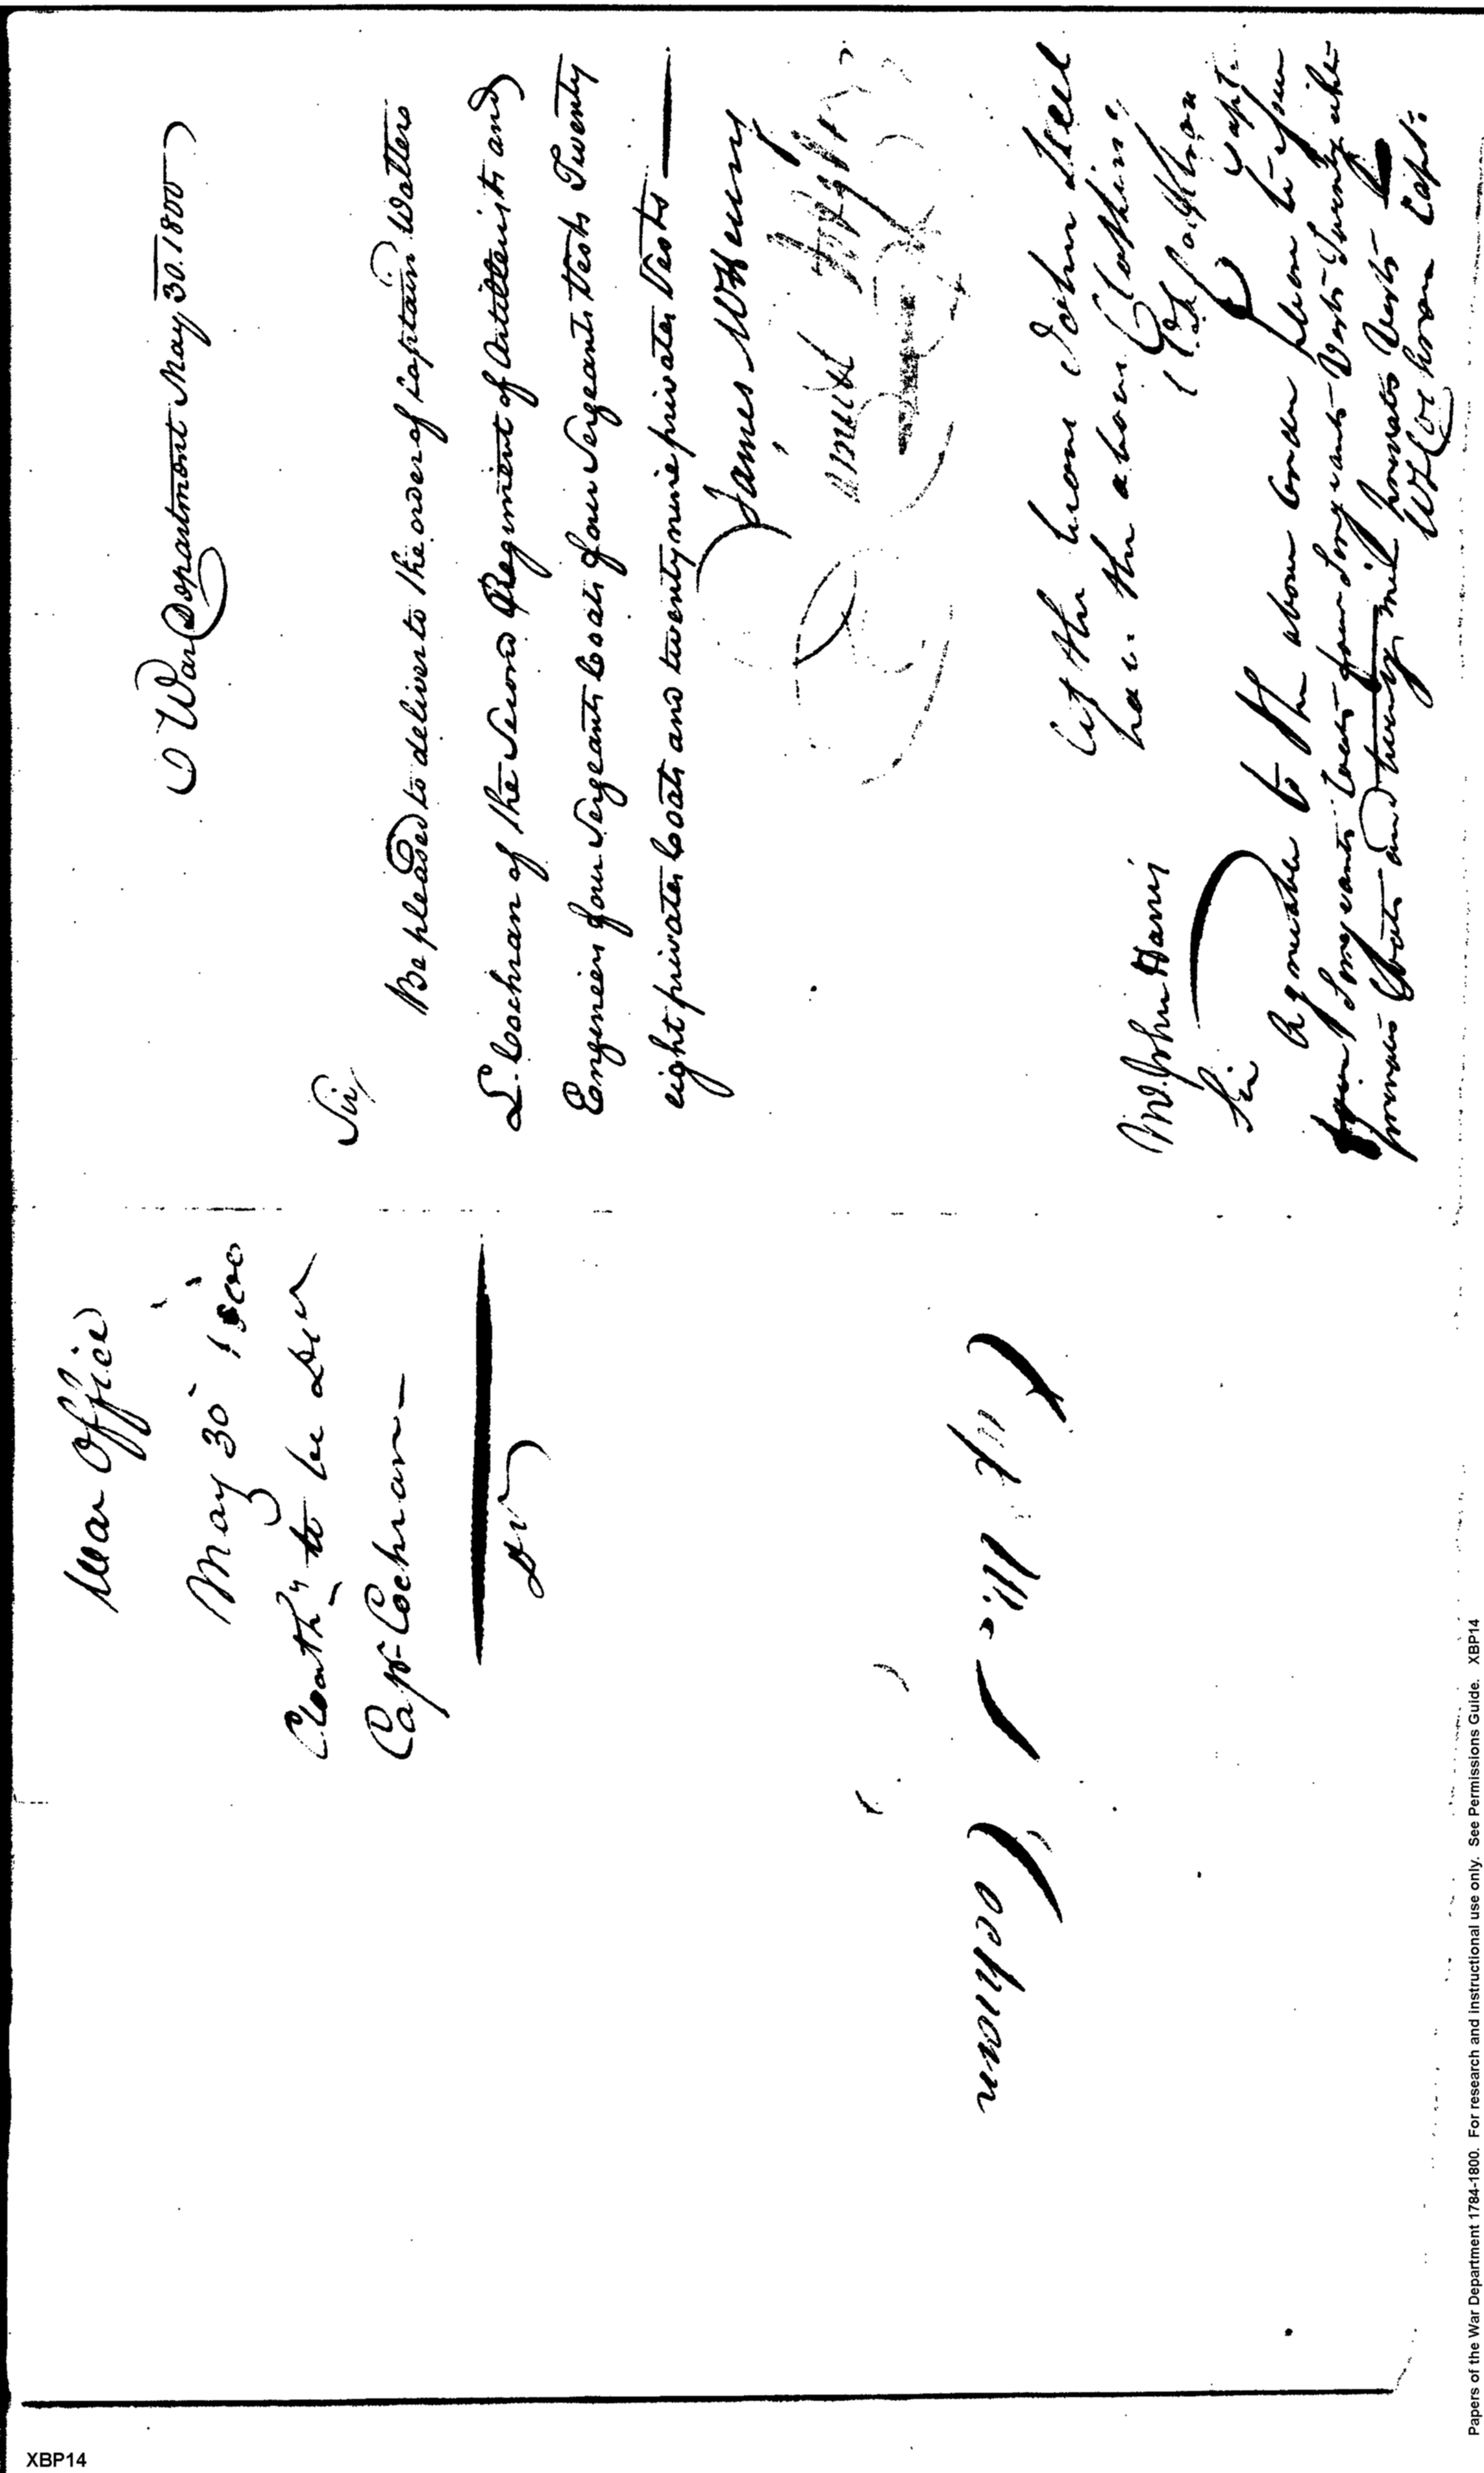 War Office
May 30 1800
Cloath.g to be Del
Capt Cochran
War Department May 30. 1800
Sir,
Be pleased to deliver to the order of Captain Walters
L. Cochran of the Second Regiment of Artillerists and
Engineers four Sergeants Coats four Sergeants Vests Twenty
eight privates Coats and twenty nine privates Vests
James McHenry
let the
have the above Clothing
Capt.
Mr. John Harris
Sir
Agreeable to the above order please to
four Sergeants Coats four Sergeants Vests Twenty eight
privates Coats and twenty nine privates Vests
W L Cochran Capt.
Cochran
XBP14
Papers of the War Department 1784-1800. For research and instructional use only. See Permissions Guide. XBP14